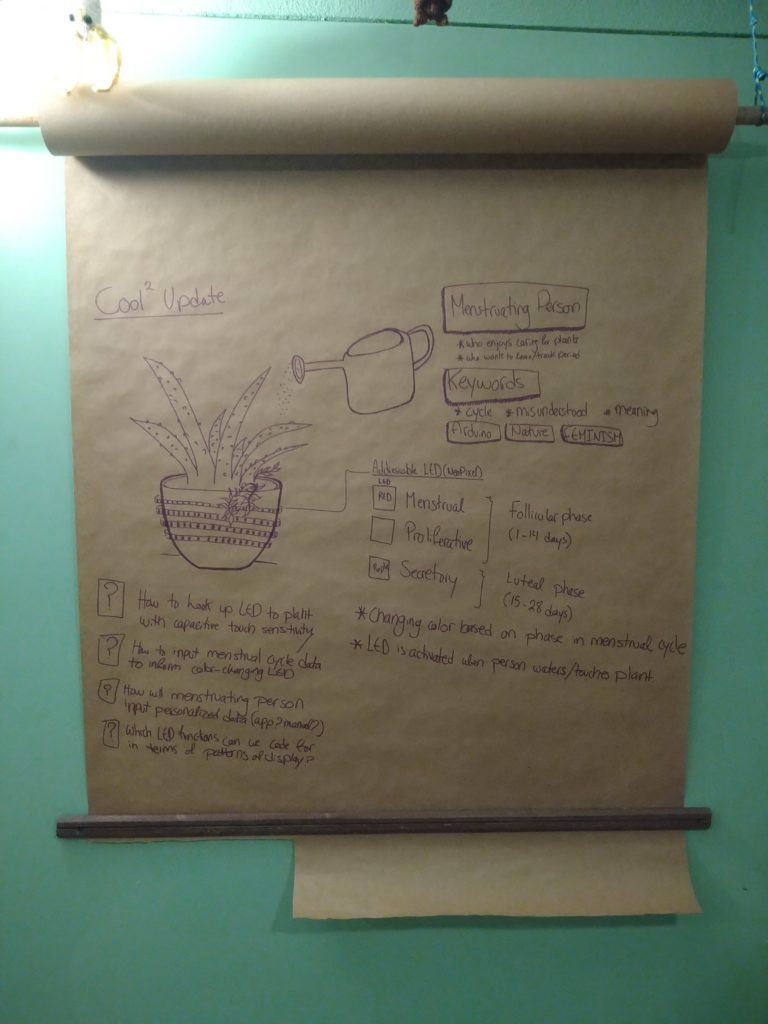 Cool² Update
Menstruating Person
* who enjoys caring for plants
* who wants to learn/track period
Keywords
* cycle * misunderstood * meaning
Arduino Nature FEMINISM
Addressable LED (NeoPixel)
LED
RED Menstrual
Proliferative
Follicular phase
(1-14 days)
Secretory
Luteal phase
(15-28 days)
* Changing color based on phase in menstrual cycle
* LED is activated when person waters/touches plant
? How to hook up LED to plant
with capacitive touch sensitivity
? How to input menstrual cycle data
to inform color-changing LED
? How will menstruating person
input personalized data (app? manual?)
? Which LED functions can we code for
in terms of patterns of display?